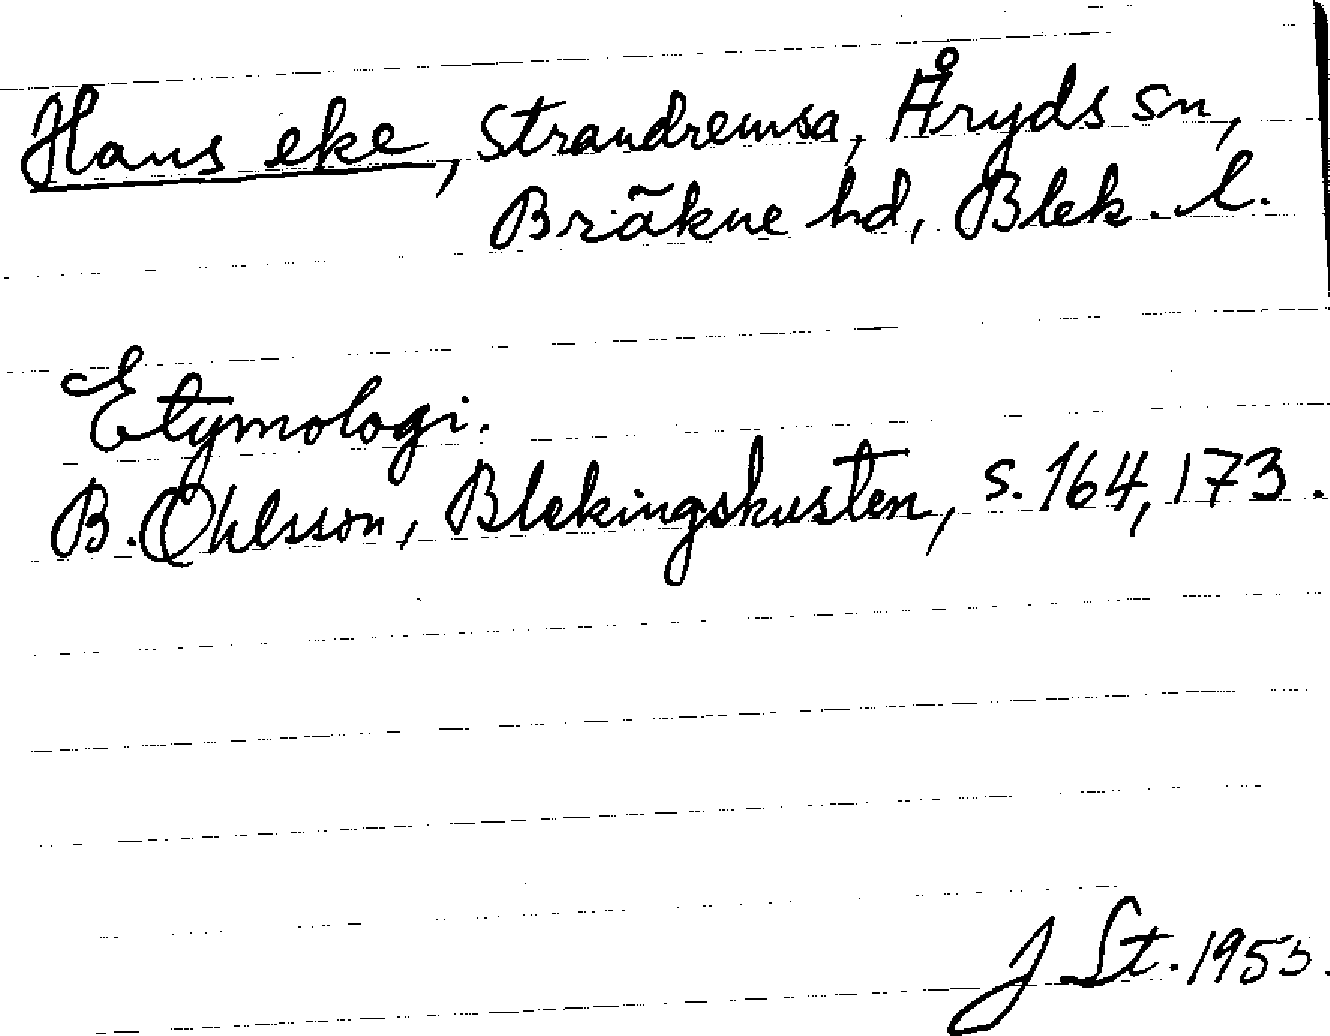 Hans eke, Strandremsa, Åryds sn,
Bräkne hd, Blek. l.
Etymologi.
B. Ohlsson, Blekingskusten, s. 164, 173.
J St. 1955.